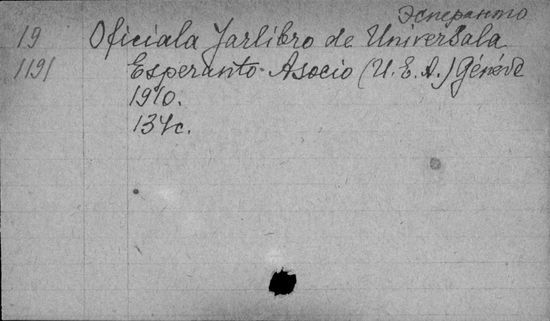 Эсперанто
19 Oficiala Jarlibro de Universala
1191 Esperanto-Asocio (U. E. A.) Génévé
1910.
134c.